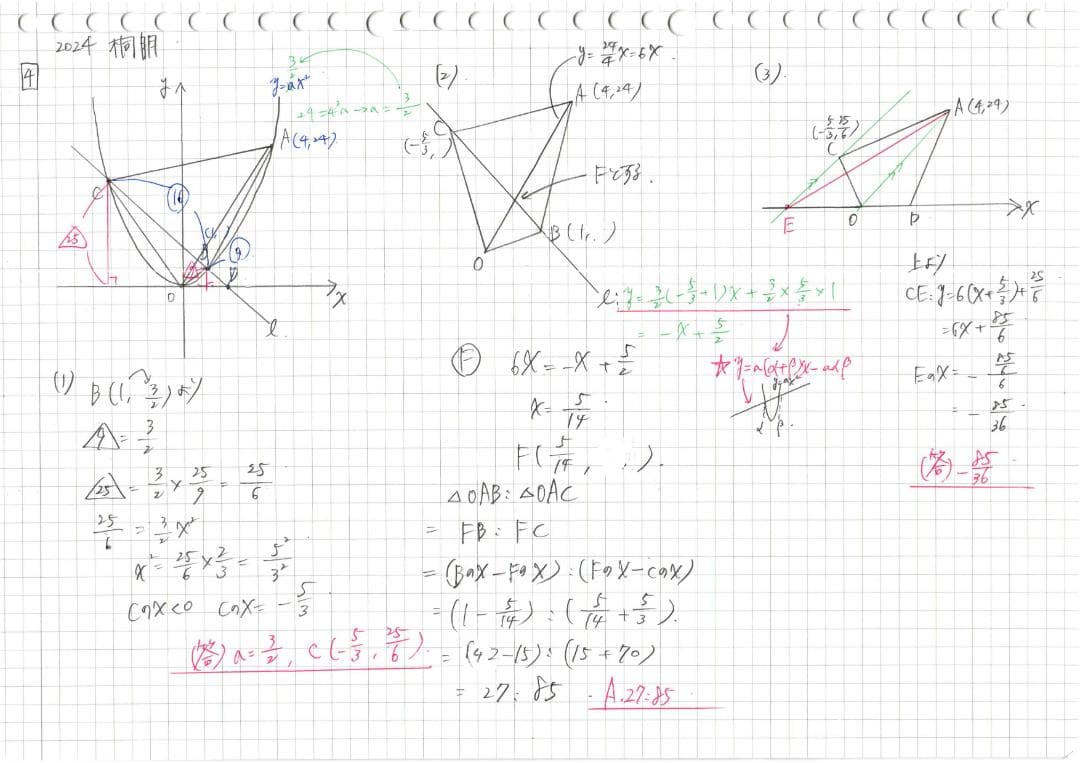 2024 桐朋
4
y
y=ax²
3/2
24=4²a→a=3/2
A(4,24)
C
⑯
⑨
△25
O
x
l
(1)
B(1, 3/2)より
△9=3/2
△25=3/2×25/9=25/6
25/6=3/2x²
x²=25/6×2/3=5²/3²
Cのx<0 Cのx=-5/3
(答)a=3/2, C(-5/3, 25/6)
(2)
y=24/4x=6x
A(4,24)
C
(-5/3, )
Fとする.
B(1, )
O
l:y=3/2(-5/3+1)x+3/2×5/3×1
=-x+5/2
☆y=a(α+β)x-aαβ
y=ax²
α β
Ⓕ 6x=-x+5/2
x=5/14
F(5/14, ).
△OAB:△OAC
=FB:FC
=(Bのx-Fのx):(Fのx-Cのx)
=(1-5/14):(5/14+5/3).
=(42-15):(15+70)
=27:85 A.27:85
(3).
A(4,24)
(-5/3, 25/6)
C
E
O
P
x
上より
CE:y=6(x+5/3)+25/6
=6x+85/6
Eのx=-85/6/6
=-85/36
(答)-85/36